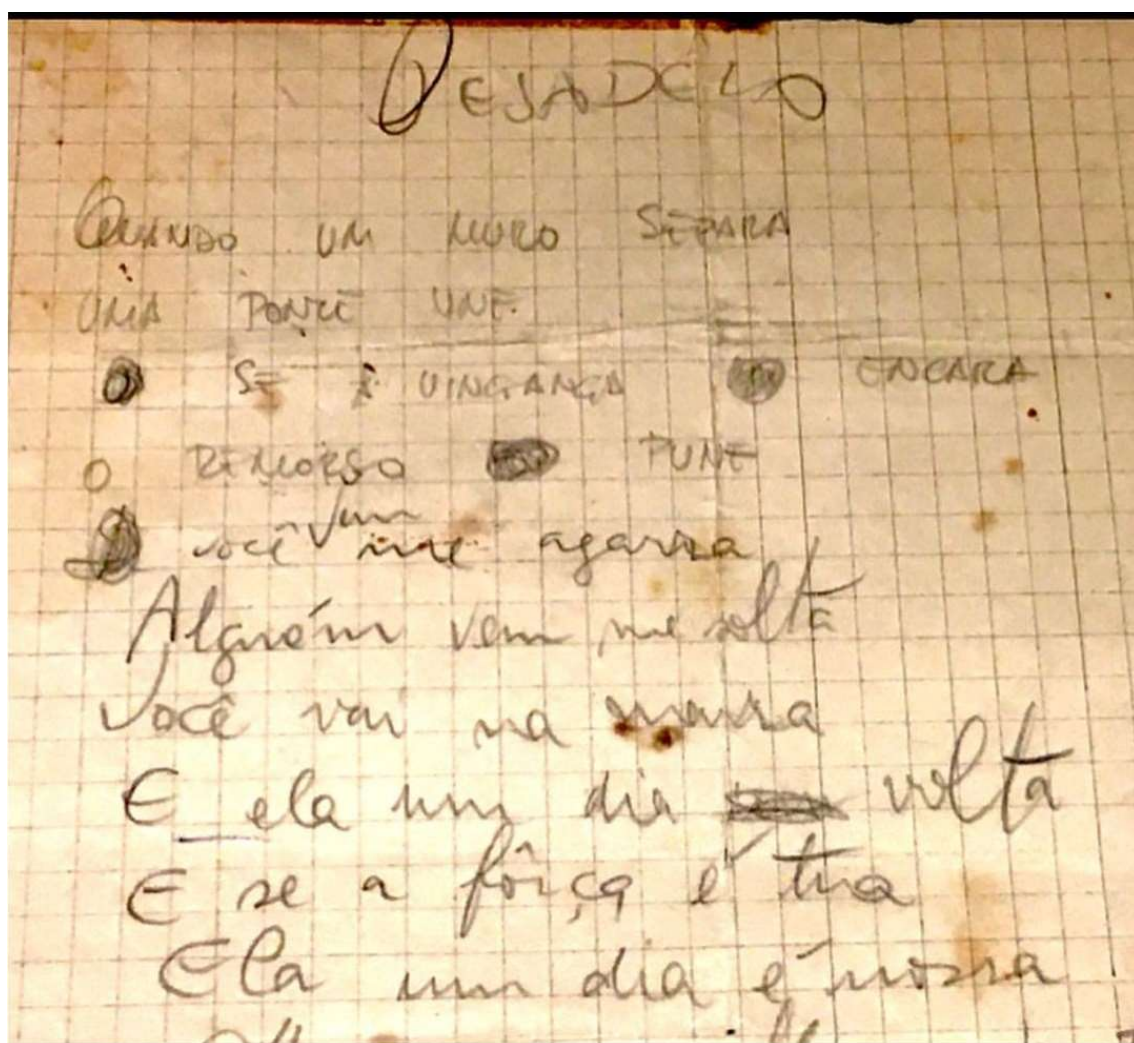 PESADELO
QUANDO UM MURO SEPARA
UMA PONTE UNE
SE A VINGANÇA ENCARA
O REMORSO PUNE
você vem me agarra
Alguém vem me solta
Você vai na marra
E ela um dia volta
E se a fôrça é tua
Ela um dia é nossa